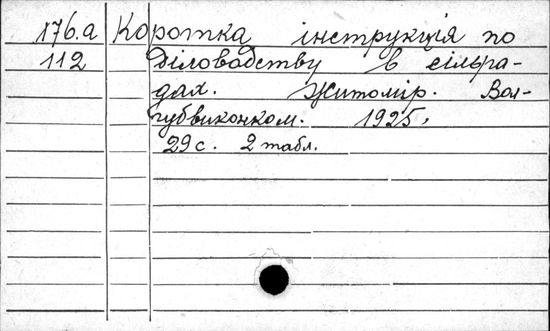 176.а Коротка інструкція по
112 діловодству в сільра-
дах. Житомір. Вол-
губвиконком. 1925,
29 с. 2 табл.